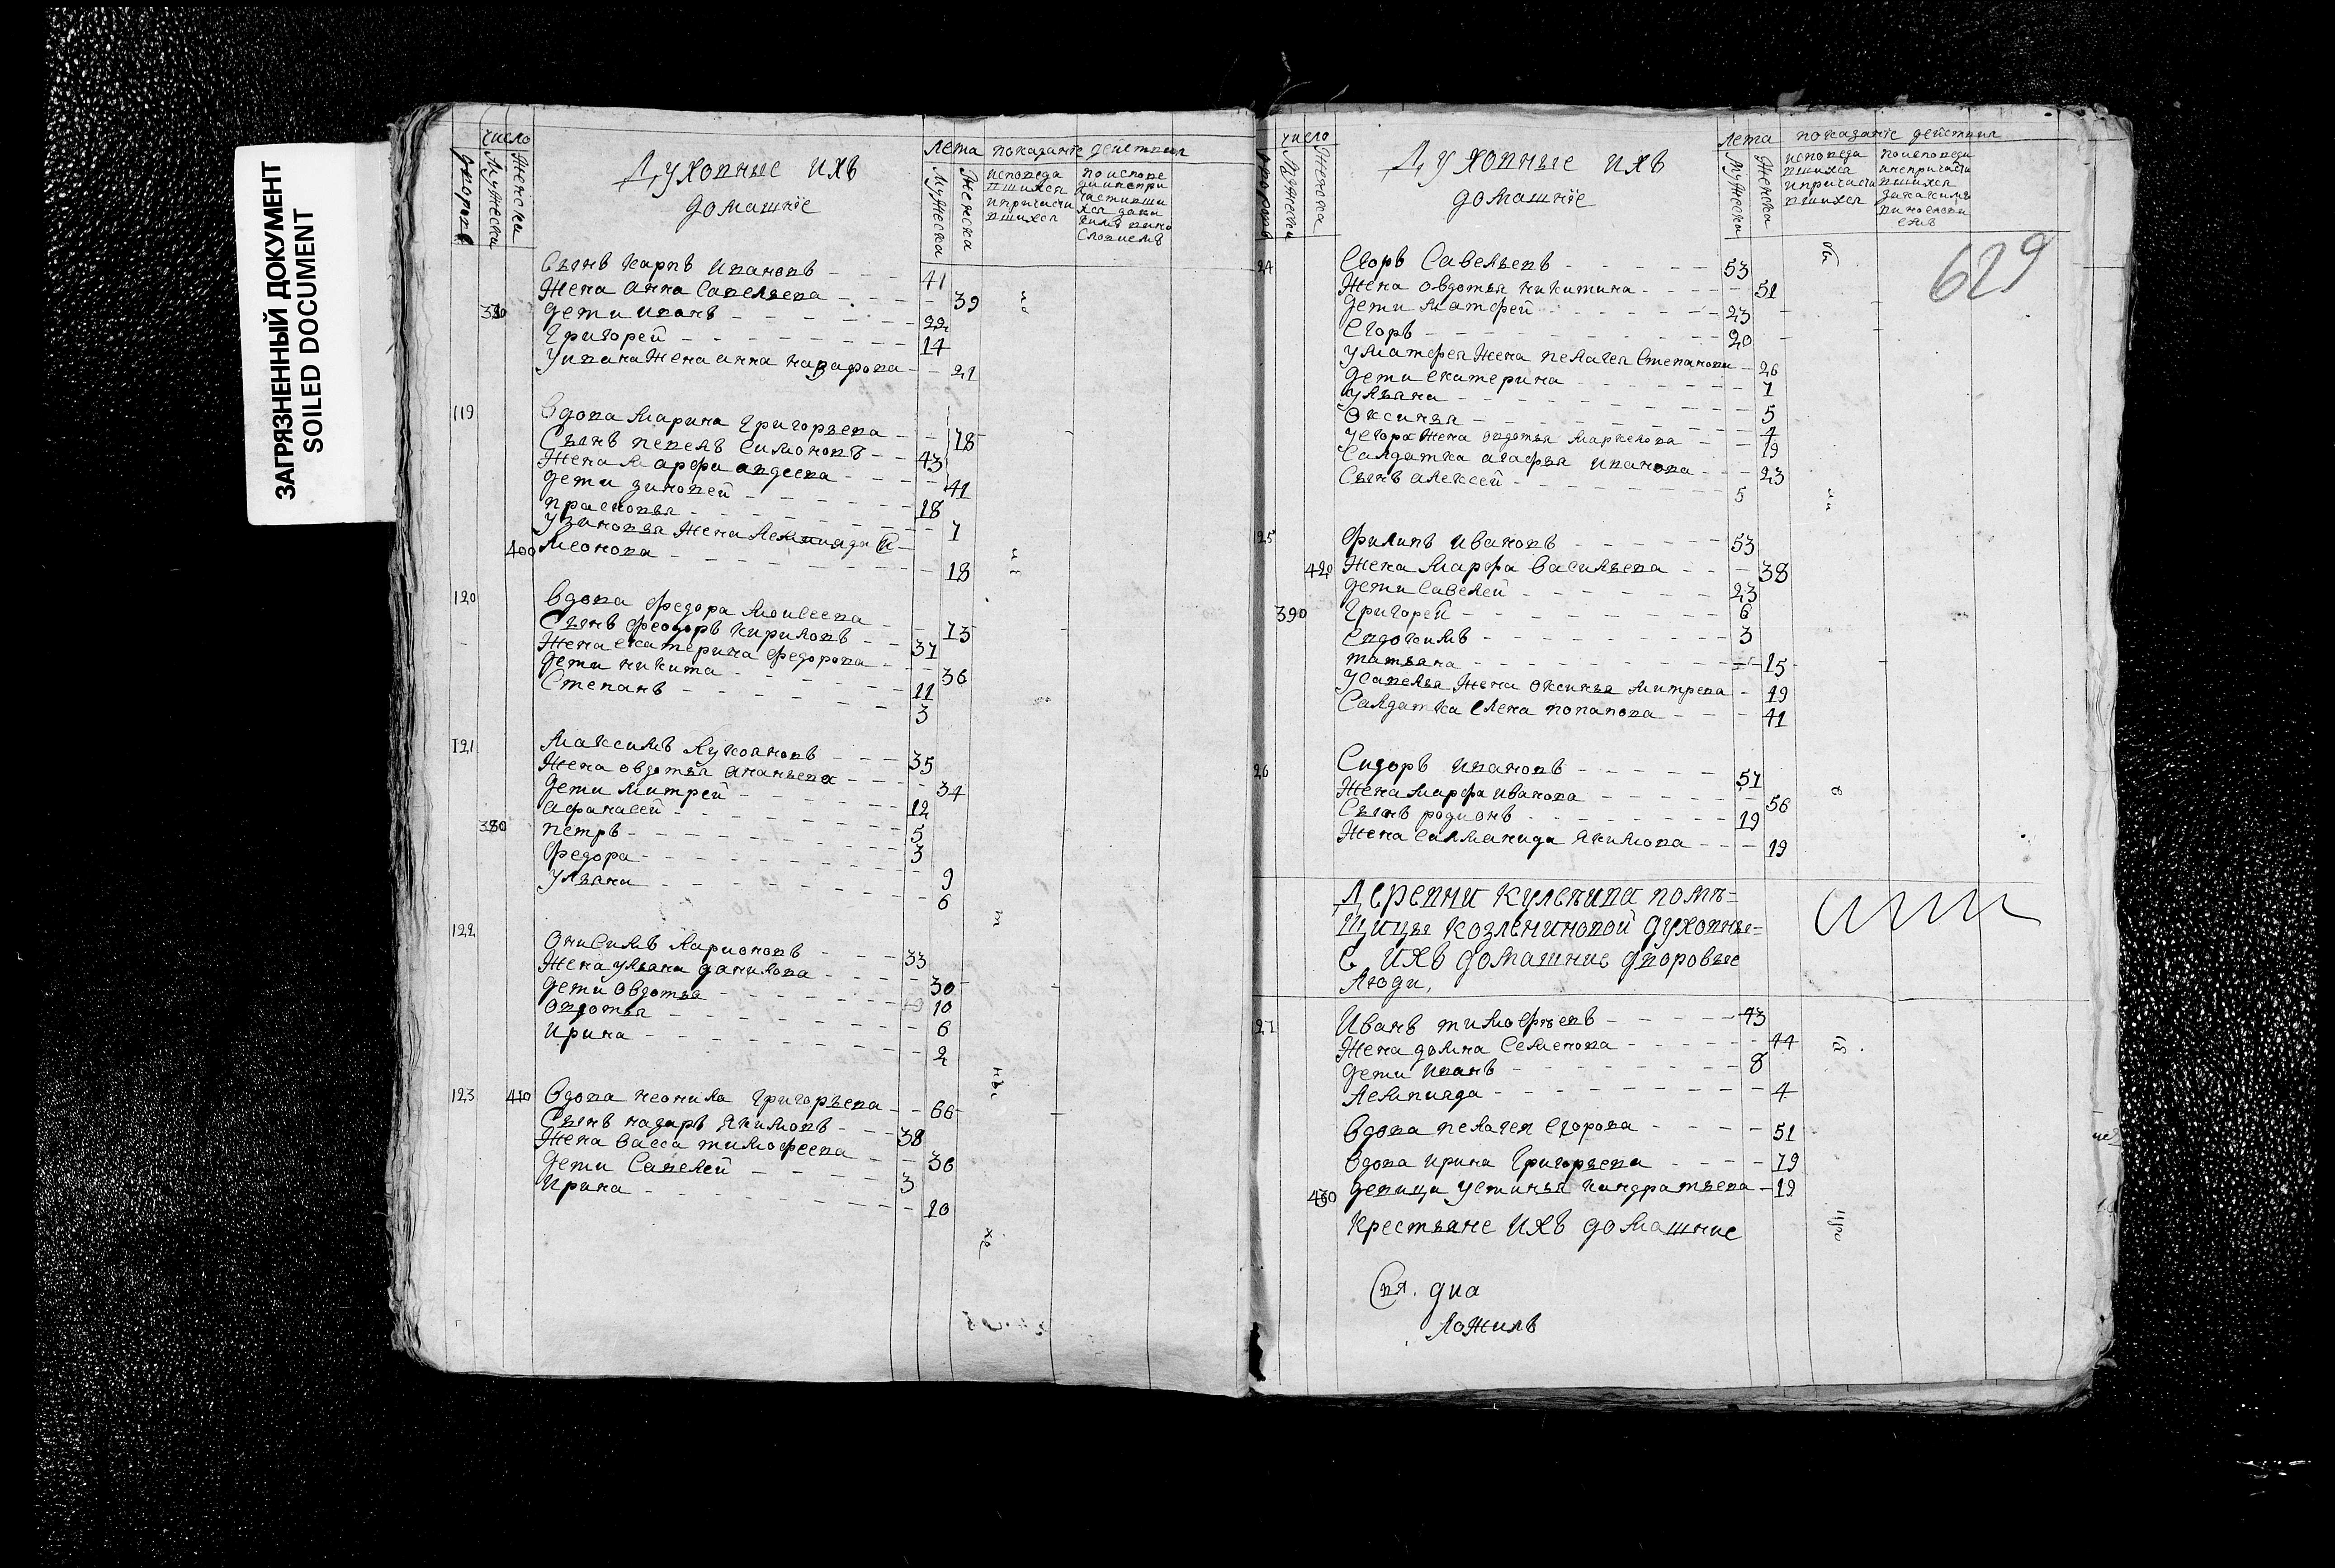 ЗАГРЯЗНЕННЫЙ ДОКУМЕНТ
SOILED DOCUMENT
число
дворовъ
Мужеска
Женска
Духовные ихъ
домашніе
Лета
Мужеска
Женска
показаніе действия
исповеда
вшихся
ипричасти
вшихся
Сынъ Карпъ Ивановъ 41
Жена Анна Савельева 39
Дети Иванъ 22
Григорей 14
У Ивана Жена Анна Назарова 21
119 Вдова Марина Григорьева 78
Сынъ Павелъ Симоновъ 43
Жена Марфа Авдеева 41
Дети Зиновей 18
Прасковья 7
У Зиновья Жена
400 Леонова 18
120 Вдова Федора Моисеева 75
Сынъ Феодоръ Кириловъ 37
Жена Екатерина Федорова 36
Дети Никита 11
Степанъ 3
121 Максимъ Лукояновъ 35
Жена Овдотья Ананьева 34
Дети Митрей 12
Афанасей 5
380 Петръ 3
Федора 9
Ульяна 6
122 Онисимъ Ларионовъ 33
Жена Ульяна Данилова 30
Дети Овдотья 10
Овдотья 6
Ирина 2
123 410 Вдова Неонила Григорьева 66
Сынъ Назаръ Якимовъ 38
Жена Васса Тимофеева 36
Дети Савелей 3
Ирина 10
число
дворовъ
Мужеска
Женска
Духовные ихъ
домашніе
Лета
Мужеска
Женска
показаніе действия
исповеда
вшихся
ипричасти
вшихся
поисповеди
инепричасти
вшихся
629
24 Егоръ Савельевъ 53
Жена Овдотья Никитина 51
Дети Матфей 23
Егоръ 20
У Матфея Жена Пелагея Степанова 26
Дети Екатерина 7
Ульяна 5
Оксинья 4
У Егора Жена Овдотья Маркелова 19
Салдатка Агафья Иванова 23
Сынъ Алексей 5
25 Филипъ Ивановъ 53
420 Жена Марфа Васильева 38
Дети Савелей 23
390 Григорей 6
Евдокимъ 3
Татьяна 15
У Савелья Жена Оксинья Митрева 19
Салдатка Елена Потапова 41
26 Сидоръ Ивановъ 57
Жена Марфа Иванова 56
Сынъ Родионъ 19
Жена Саламанида Якимова 19
Деревни Кулевипа помѣ=
щицы Козлениновой духовны=
е ихъ домашние дворовые
Люди,
27 Иванъ Тимофѣевъ 43
Жена Домна Семенова 44
Дети Иванъ 8
Лемпияда 4
Вдова Пелагея Егорова 51
Вдова Ирина Григорьева 79
430 Девица Устинья Кандратьева 19
Крестьяне ихъ домашние
диа